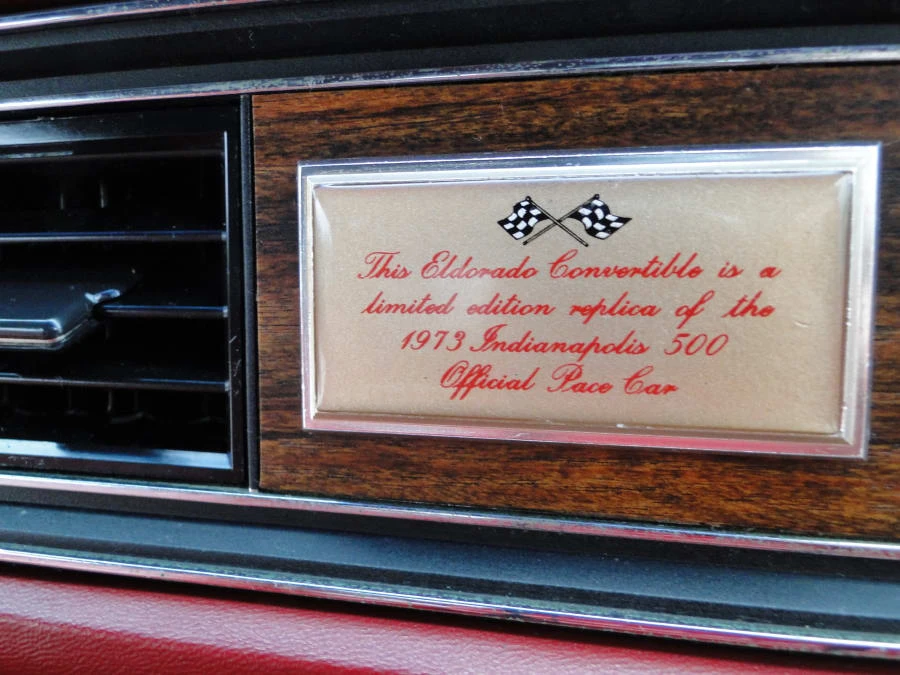 This Eldorado Convertible is a
limited edition replica of the
1973 Indianapolis 500
Official Pace Car